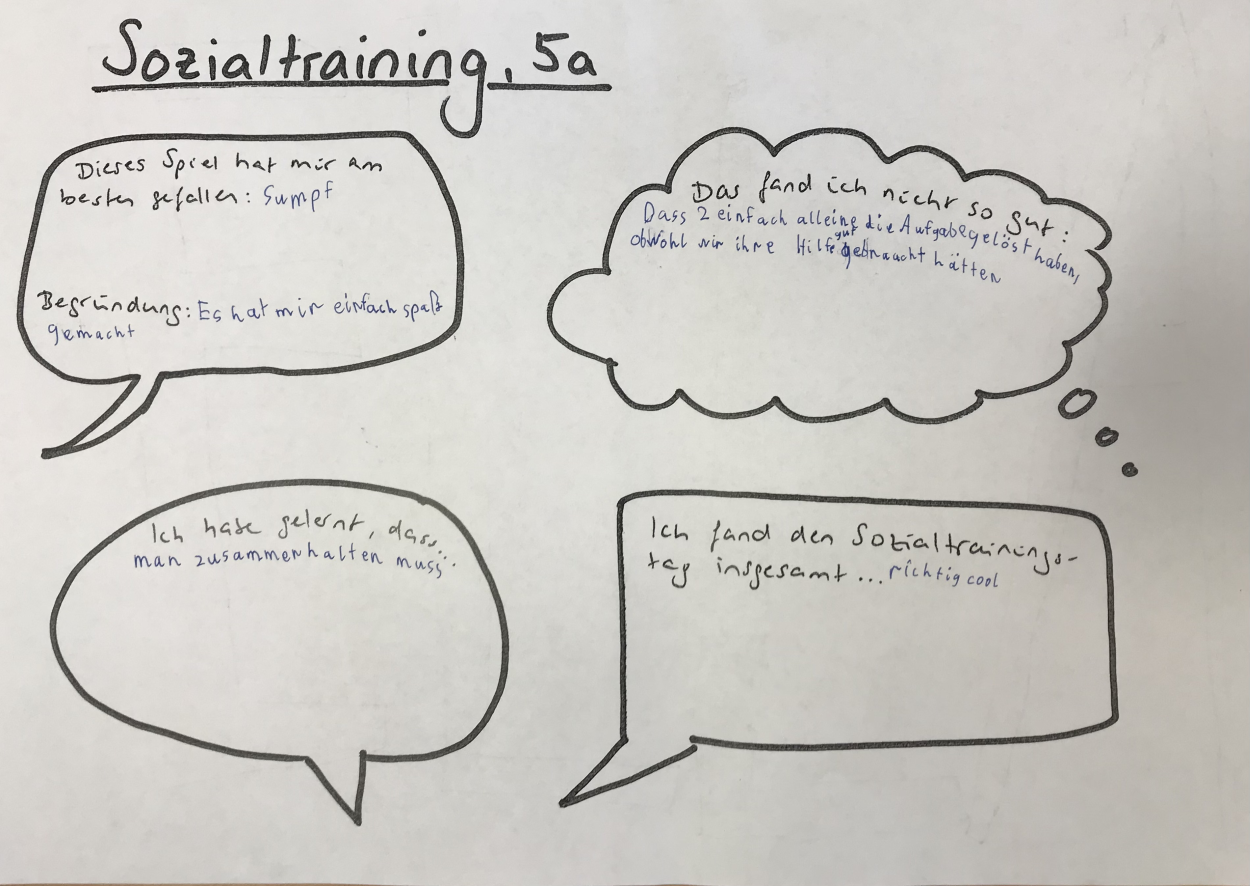 Sozialtraining, 5a
Dieses Spiel hat mir am
besten gefallen: Sumpf
Begründung: Es hat mir einfach spaß
gemacht
Das fand ich nicht so gut:
Dass 2 einfach alleine die Aufgabe gelöst haben,
obwohl wir ihre Hilfe gut gebraucht hätten
Ich habe gelernt, dass...
man zusammenhalten muss
Ich fand den Sozialtrainings-
tag insgesamt... richtig cool